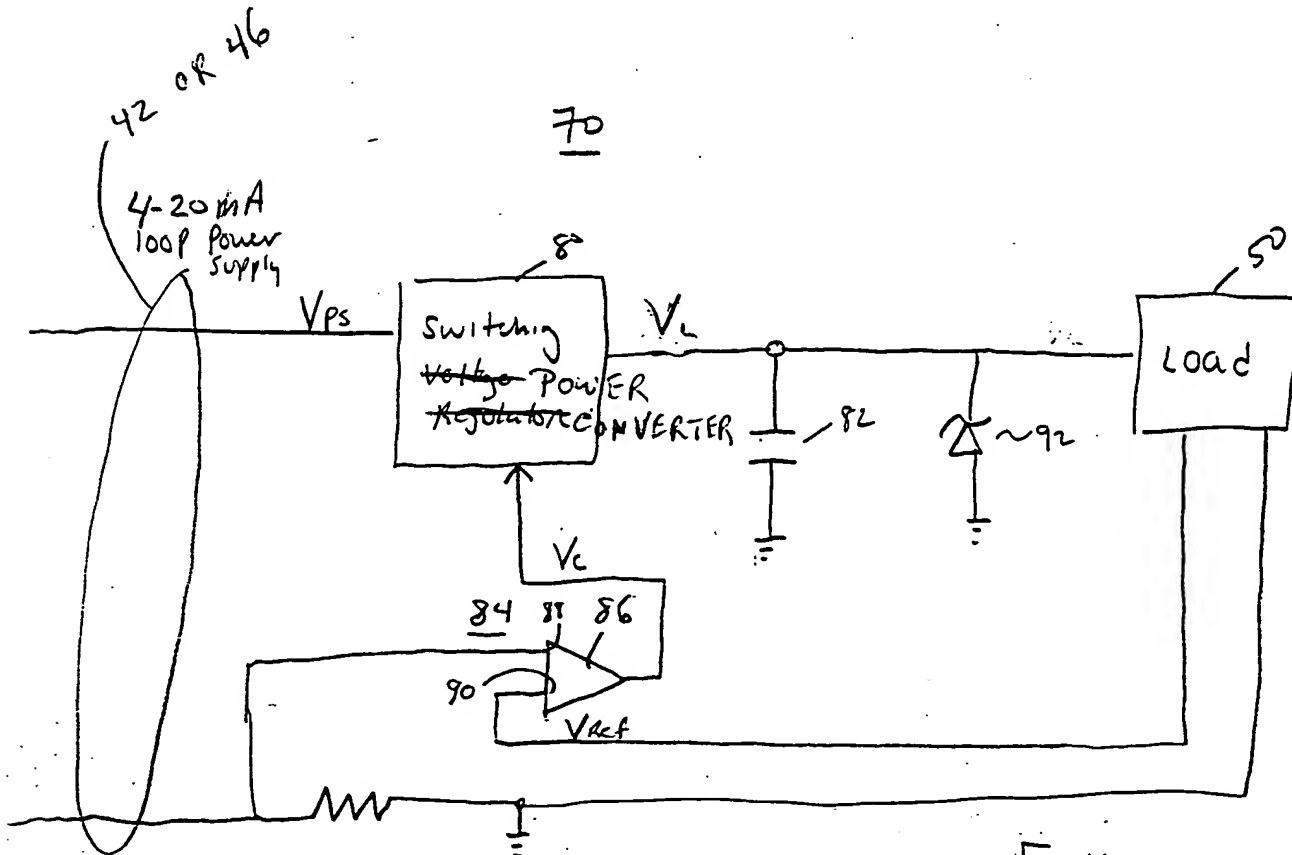 42 OR 46
70
4-20 mA
loop Power
Supply
8
50
Vps
Switching
Voltage POWER
Regulator CONVERTER
VL
Load
82
~92
Vc
84 88 86
90
VRef